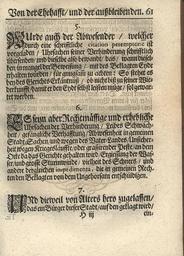 Von der Ehehafft / und der außbleibenden. 61
5.
Wurde auch der Abwesender / welcher
durch eine schrifftliche citation peremptorie ist
vorgeladen / Ursachen seiner Verhinderung schrifftlich
übersenden und dieselbe also bewandt das / wann dieselbe
in mangel der Beweisung / mit des Beklagten Ende
erhalten wurden / sie
so stehet es
bey des Gerichts Erkäntnüß / ob nicht biß zu seiner Wie-
derkunfft, damit er den Eydt selbst leisten möge / gewartet
werden.
6.
Wenn aber Rechtmässige und erhebliche
Ursachen der Verhinderung / Leibes Schwach-
heit / gefängliche Verhafftung / Abwesenheit in gemeinen
Stadt Sachen, und wegen des Vater-Landes Unsicher-
heit wegen Kriegesläuffte, oder grassirender Peste, an dem
Orte da das Gerichte gehalten wird, Ergiessung der Was-
ser und grosse Sturmwinde / vielheit des Schnees / und
andere dergleichen impedimenta, die in gemeinen Rech-
ten den Beklagten von dem Ungehorsam entschuldigen.
7.
Und dieweil von Alters hero zugelassen /
das ein Bürger dieser Stadt / auf den geklagt wird /
H iij
ein-